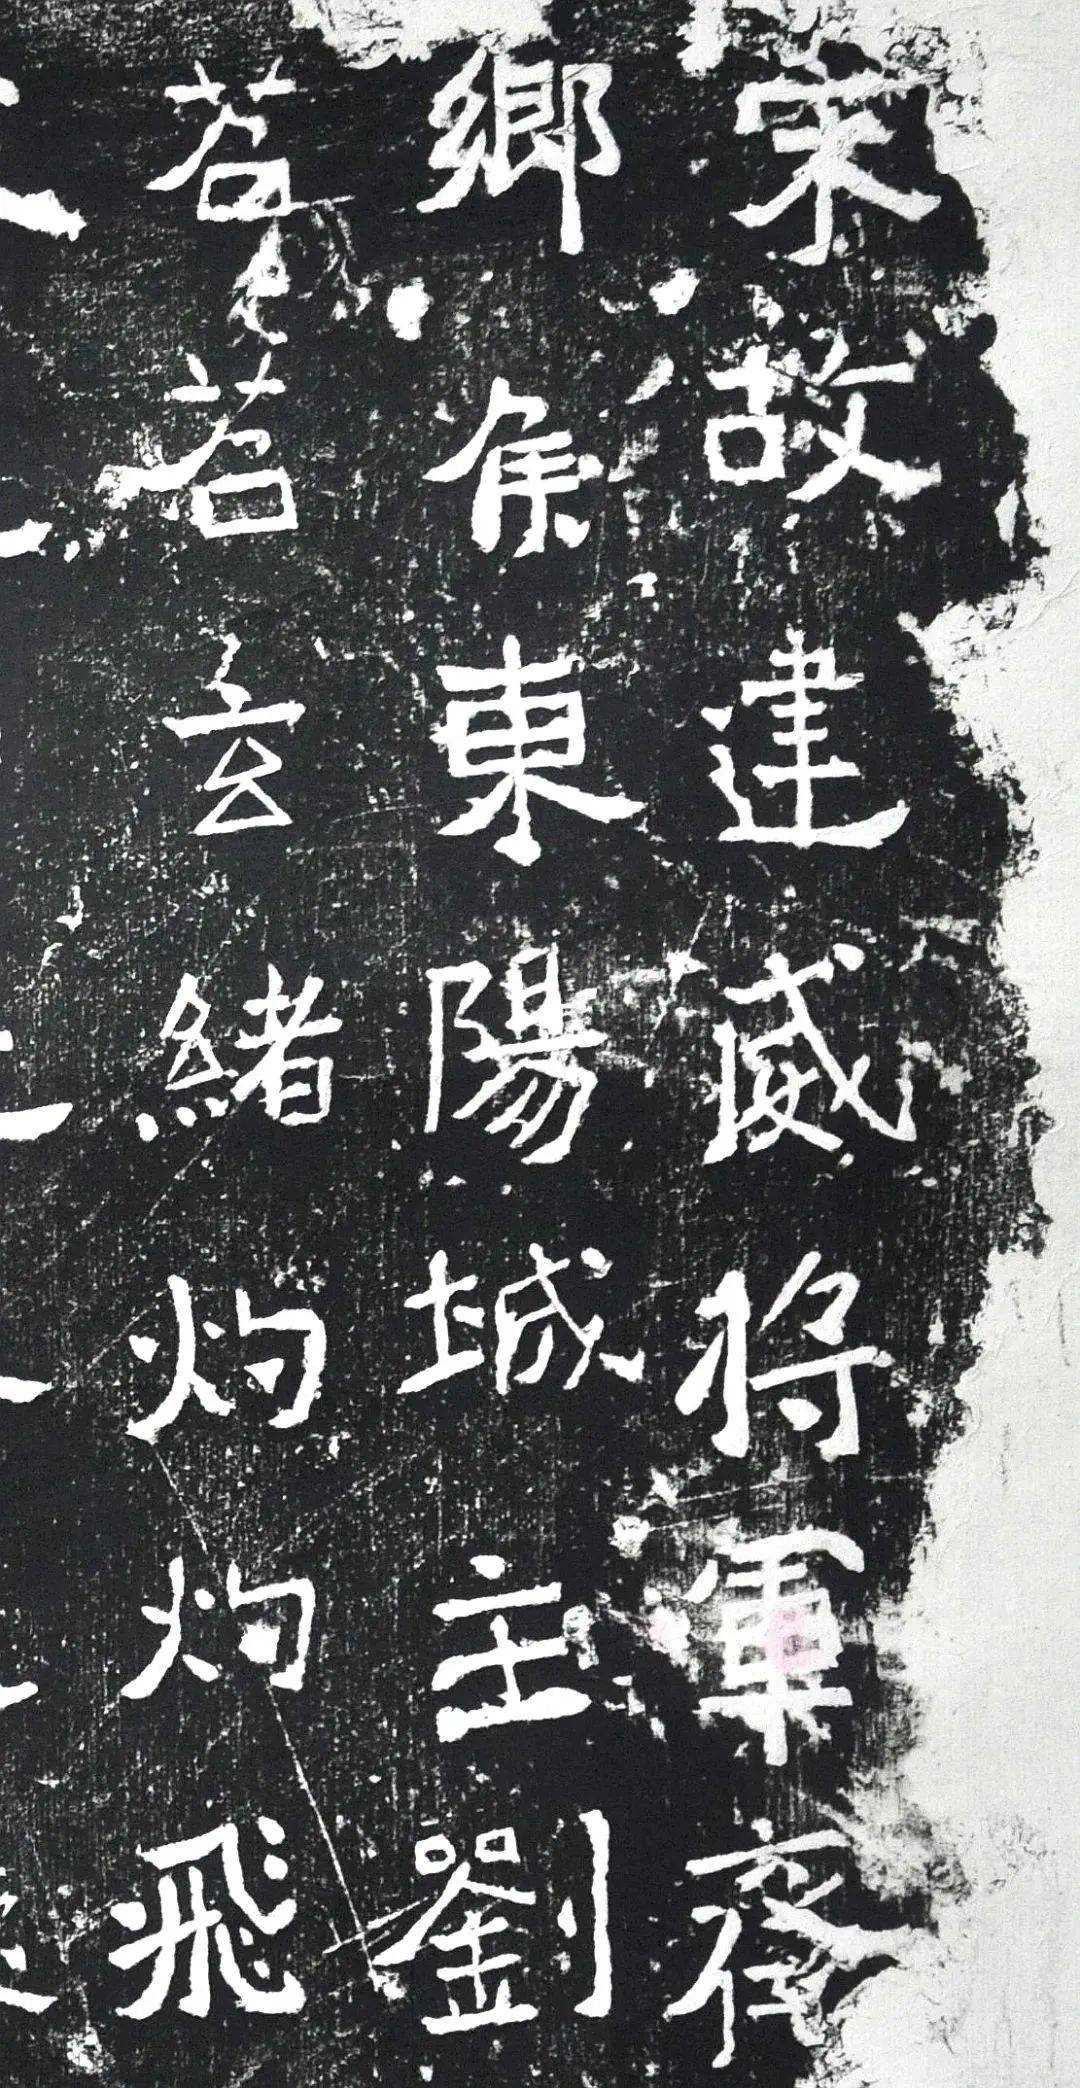 宋故建威将軍齊
鄉侯東陽城主劉
苕苕玄緒灼灼飛